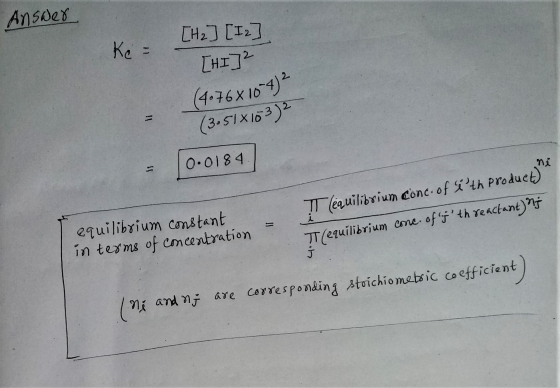 Answer
Kc = [H2] [I2] / [HI]^2
= (4.76 X 10^-4)^2 / (3.51 X 10^-3)^2
= 0.0184
equilibrium constant in terms of concentration = π_i (equilibrium conc. of 'i'th product)^ni / π_j (equilibrium conc. of 'j'th reactant)^nj
(ni and nj are corresponding stoichiometric coefficient)